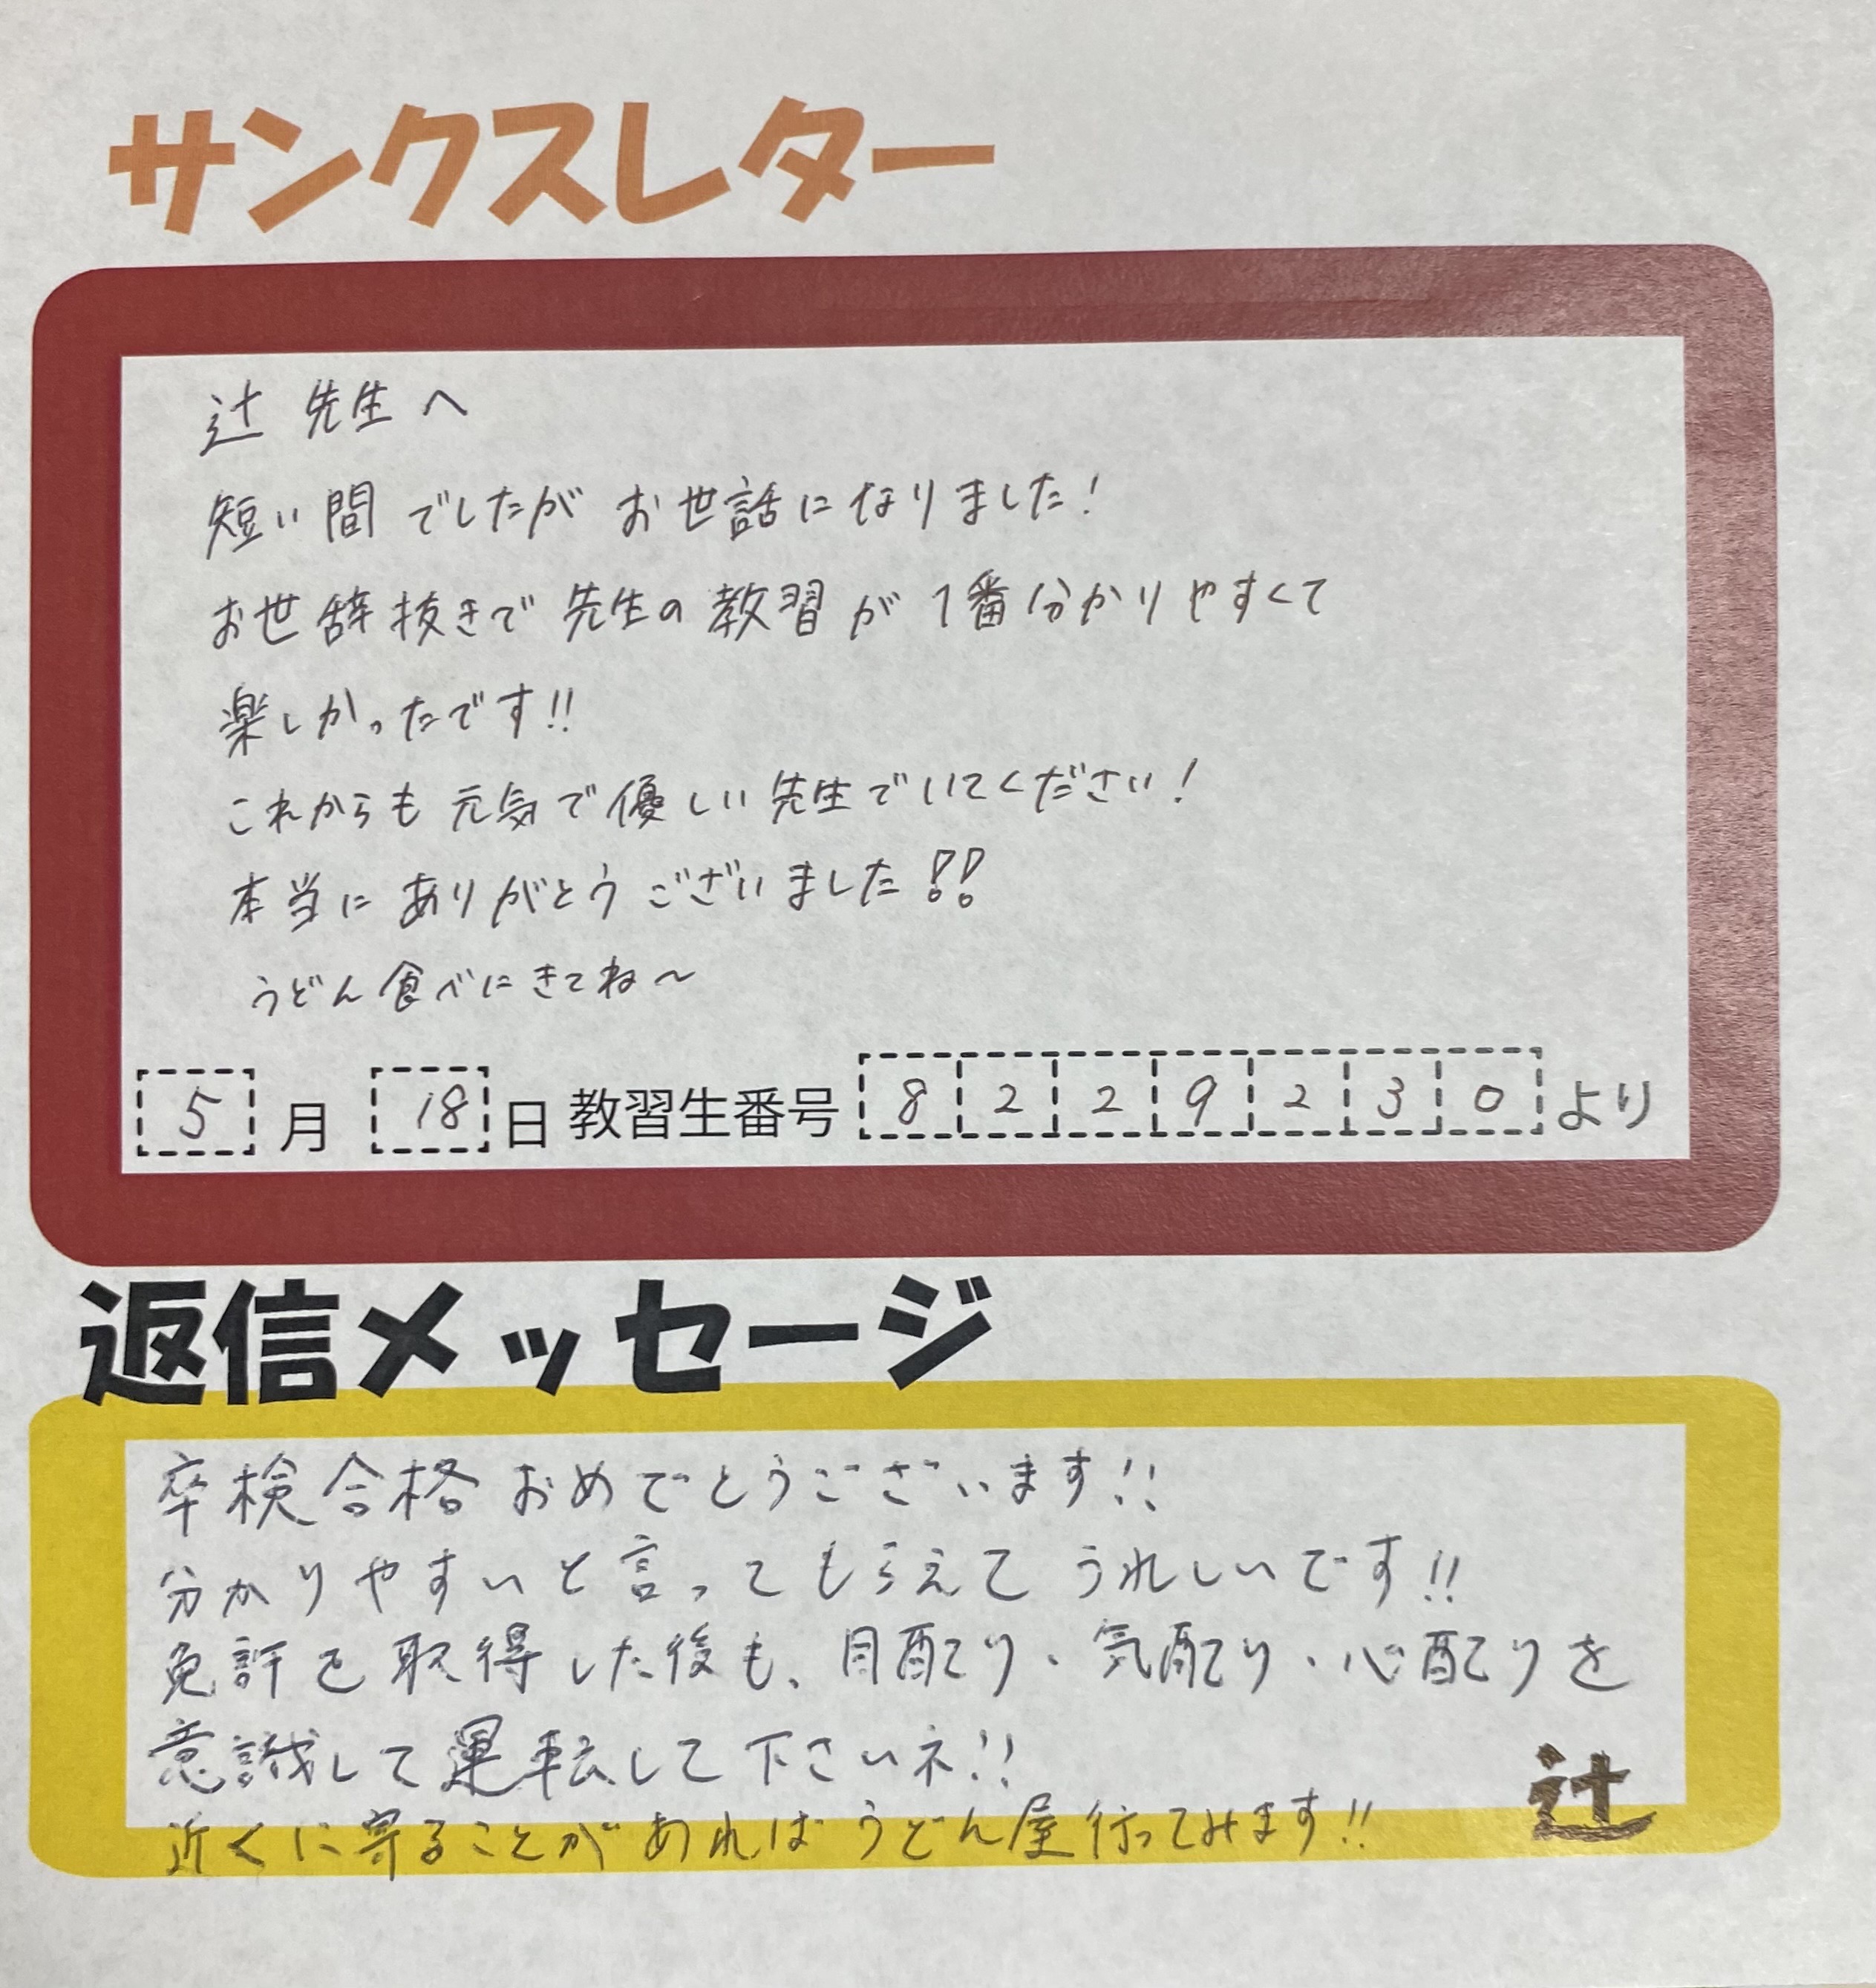 サンクスレター
辻 先生へ
短い間でしたがお世話になりました!
お世辞抜きで先生の教習が1番分かりやすくて
楽しかったです!!
これからも元気で優しい先生でいてください!
本当にありがとうございました!!
うどん食べにきてね〜
5月18日教習生番号8229230より
返信メッセージ
卒検合格おめでとうございます!!
分かりやすいと言ってもらえてうれしいです!!
免許を取得した後も、目配り・気配り・心配りを
意識して運転して下さいネ!!
近くに寄ることがあればうどん屋行ってみます!!
辻